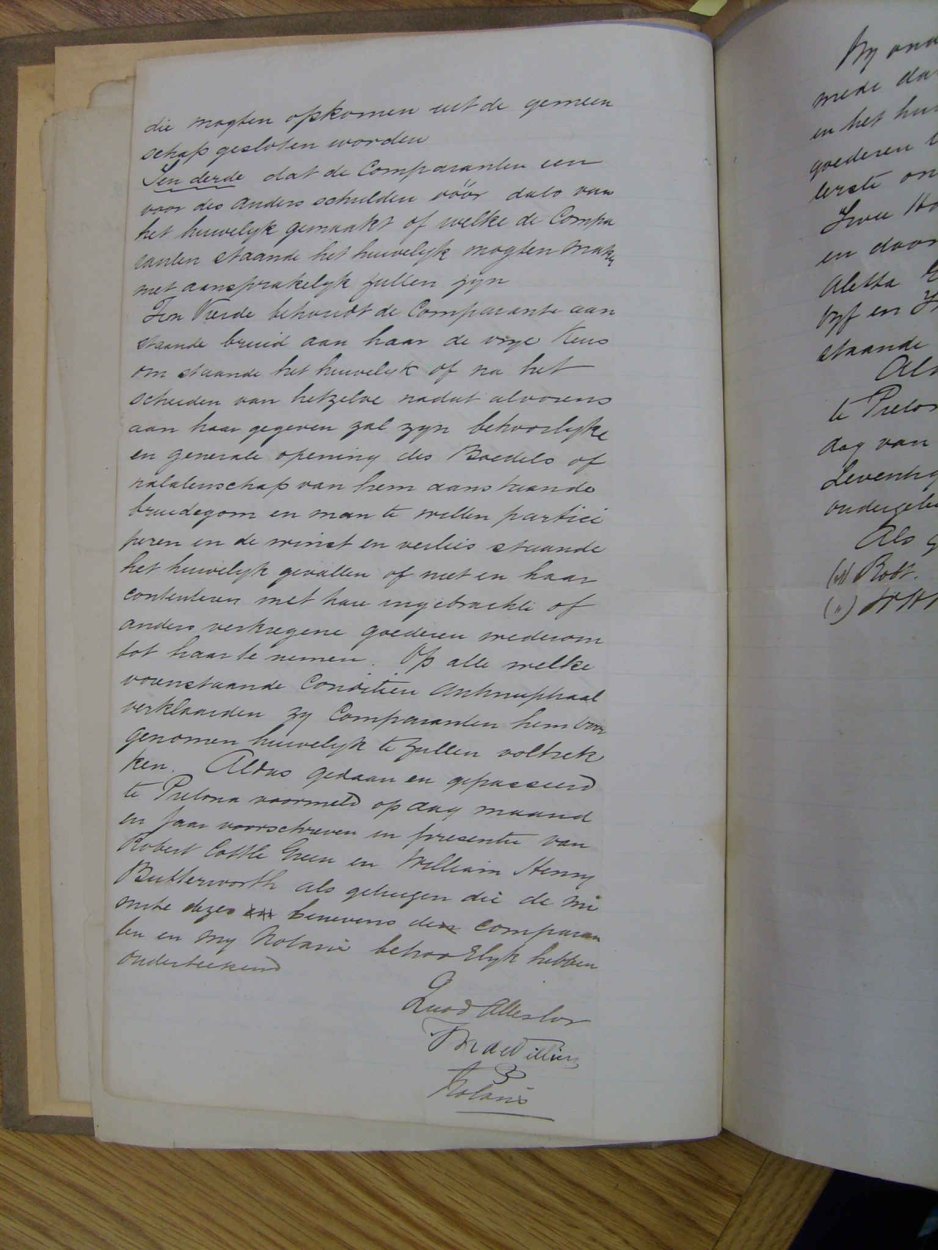 die mogten opkomen uit de gemeen
schap gesloten worden
Ten derde dat de Comparanten een
voor des anders schulden vóór dato van
het huwelyk gemaakt of welke de Compa
ranten staande het huwelyk mogten maken
niet aansprakelyk zullen zyn
Ten Vierde behoudt de Comparante aan
staande bruid aan haar de vrye keus
om staande het huwelyk of na het
scheiden van hetzelve nadat alvorens
aan haar gegeven zal zyn behoorlyke
en generale opening des Boedels of
nalatenschap van hem aanstaande
bruidegom en man te willen partici
peren in de winst en verlies staande
het huwelyk gevallen of niet en haar
contenteren met hare ingebrachte of
anders verkregene goederen wederom
tot haar te nemen. Op alle welke
voorstaande Conditien Antenuptiaal
verklaarden zy Comparanten hem voor
genomen huwelyk te zullen voltrek
ken. Aldus gedaan en gepasseerd
te Pretoria voormeld op dag maand
en Jaar voorschreven in presentie van
Robert Cottle Green en William Henny
Butterworth als getuigen die de mi
nute dezes benevens de Comparan
ten en my Notaris behoorlyk hebben
onderteekend
Quod Attestor
de Villiers
Notaris
By
mede
en het
goederen
eerste
Twee
en door
Aletta
Vyf en
staande
te Pretor
dag van
Zeventig
Als
(w) Robt.